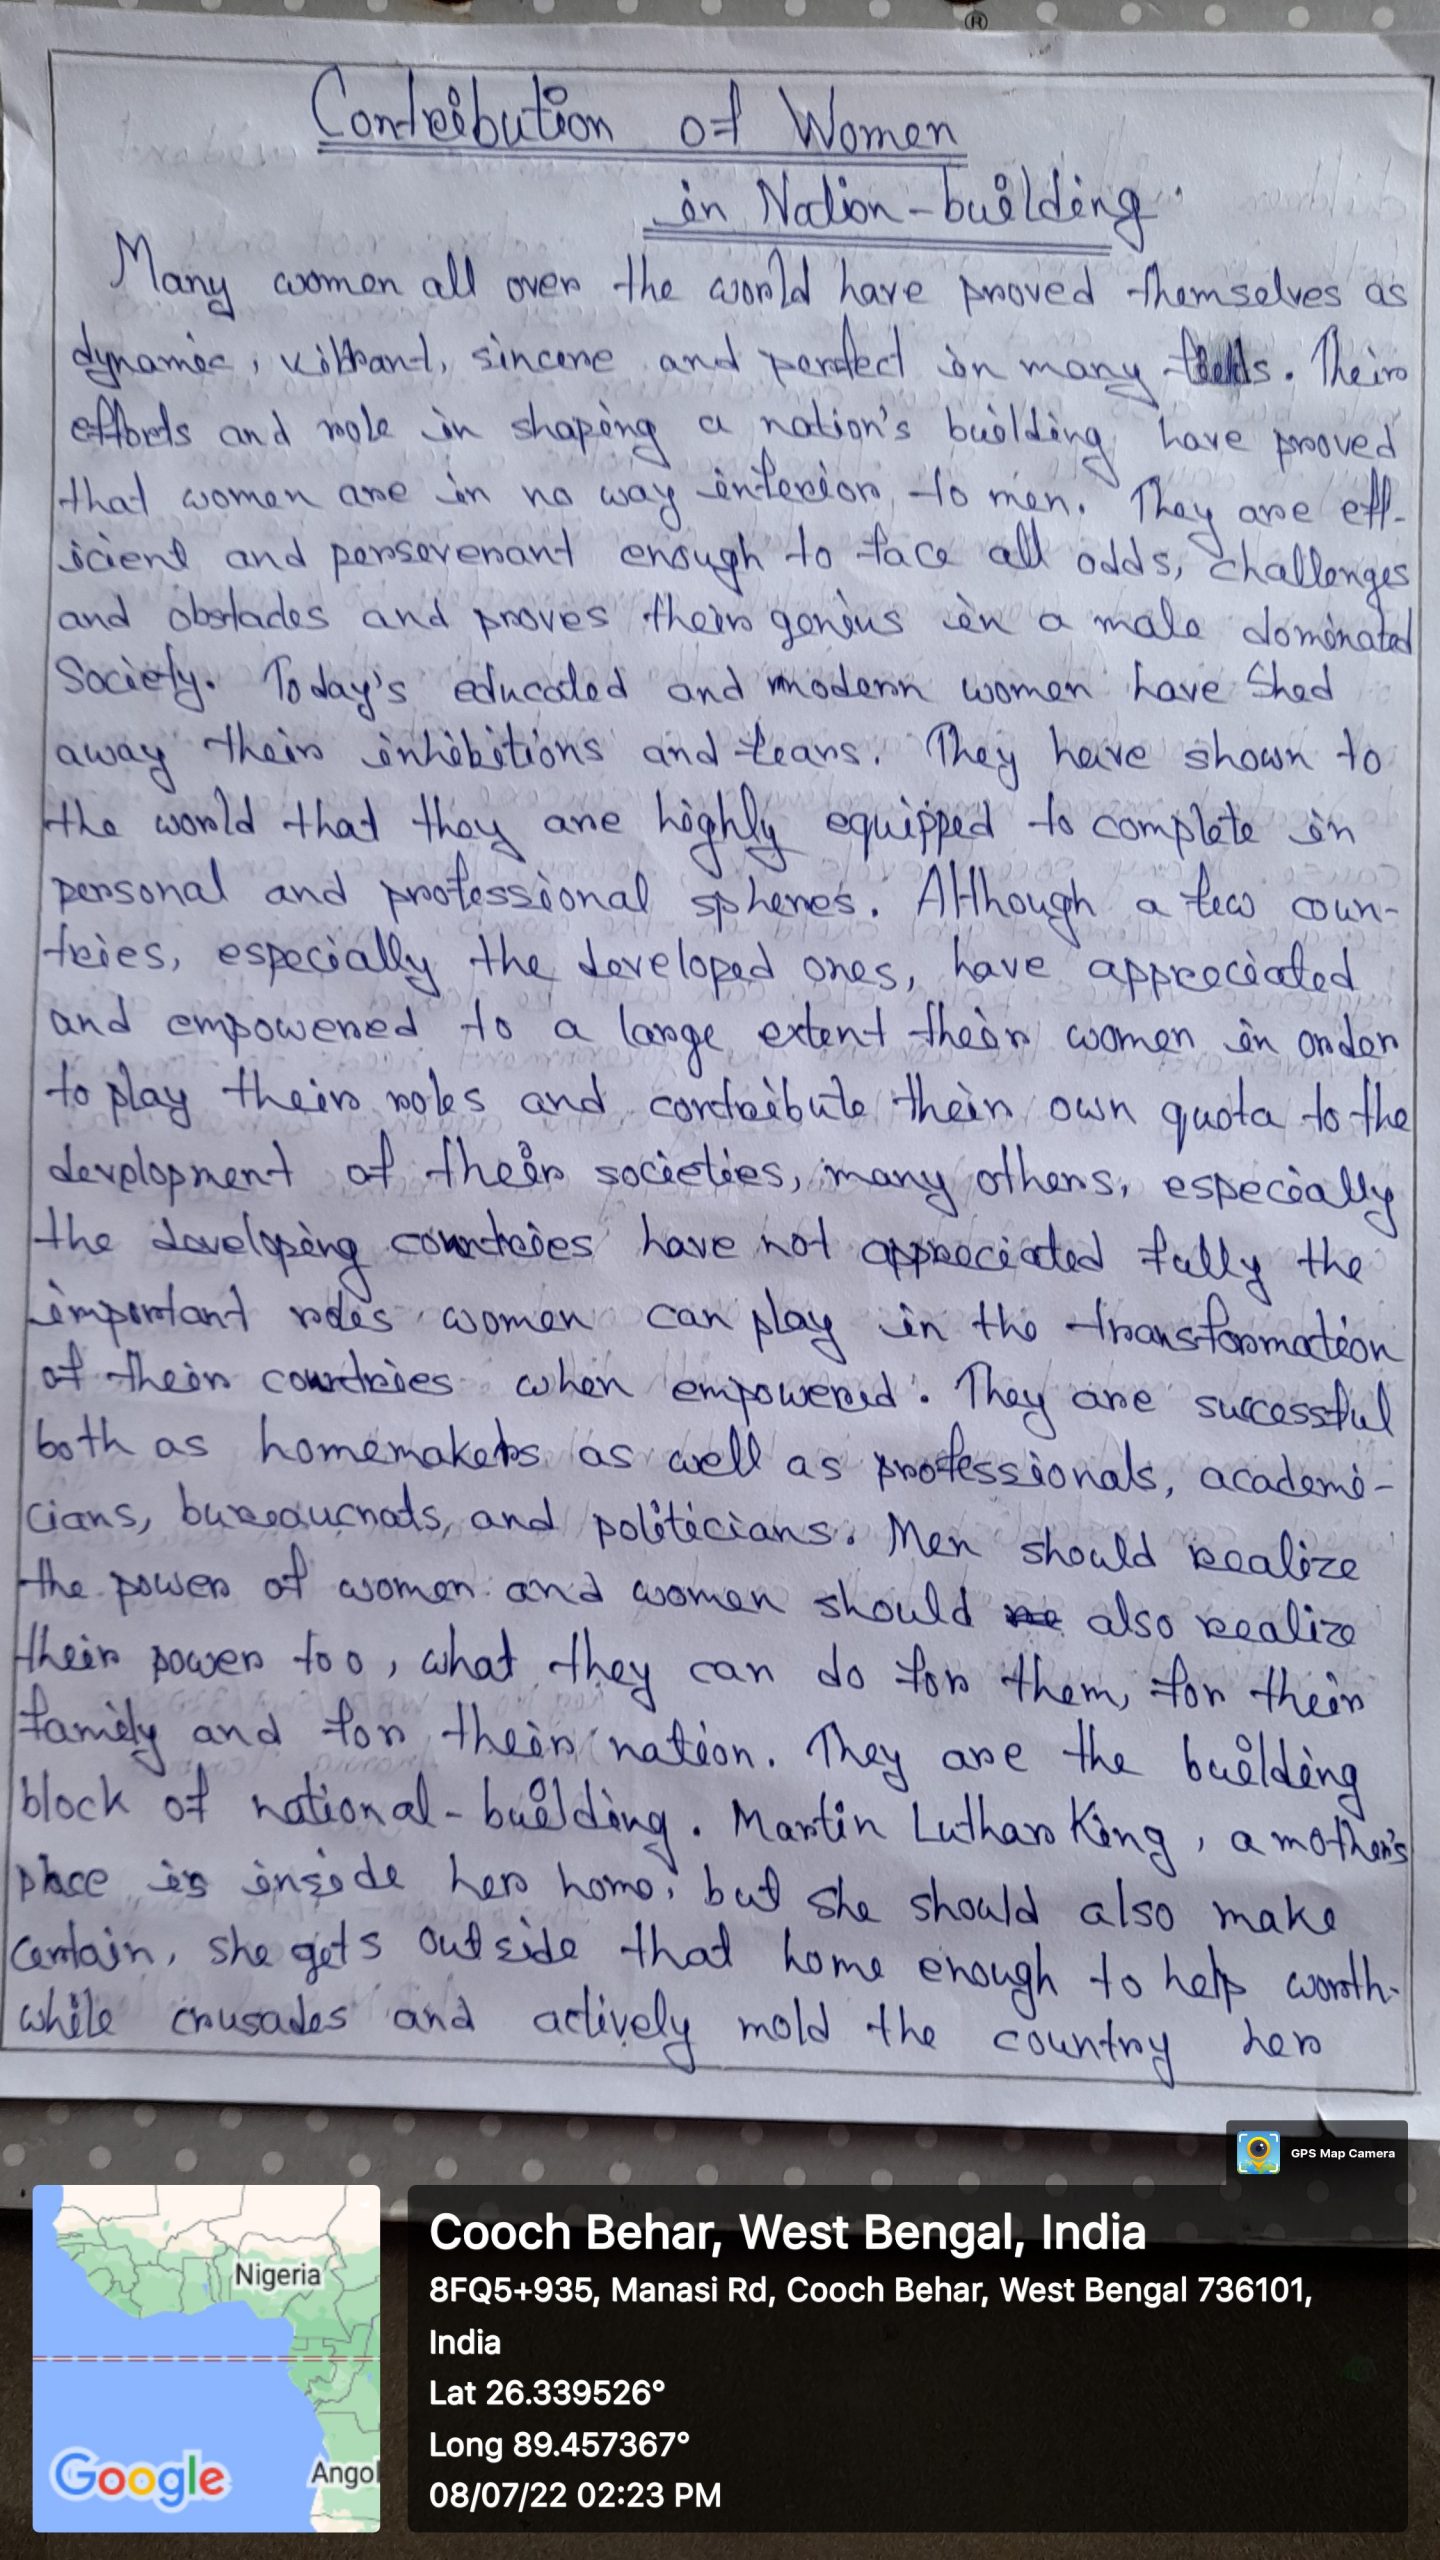 ®
Contribution of Women
in Nation-building
Many women all over the world have proved themselves as
dynamic, vibrant, sincere and perfect in many fields. Their
efforts and role in shaping a nation's building have proved
that women are in no way inferior to men. They are eff-
icient and perseverant enough to face all odds, challenges
and obstacles and proves their genius in a male dominated
Society. Today's educated and modern women have Shed
away their inhibitions and fears. They have shown to
the world that they are highly equipped to complete in
personal and professional spheres. Although a few coun-
tries, especially the developed ones, have appreciated
and empowered to a large extent their women in order
to play their roles and contribute their own quota to the
development of their societies, many others, especially
the developing countries have not appreciated fully the
important roles women can play in the transformation
of their countries when empowered. They are successful
both as homemakers as well as professionals, academi-
cians, bureaucrats, and politicians. Men should realize
the power of women and women should also realize
their power too, what they can do for them, for their
family and for their nation. They are the building
block of national-building. Martin Luthar King, a mother's
place is inside her home, but she should also make
certain, she gets outside that home enough to help worth-
while crusades and actively mold the country her
GPS Map Camera
Nigeria
Angol
Google
Cooch Behar, West Bengal, India
8FQ5+935, Manasi Rd, Cooch Behar, West Bengal 736101,
India
Lat 26.339526°
Long 89.457367°
08/07/22 02:23 PM